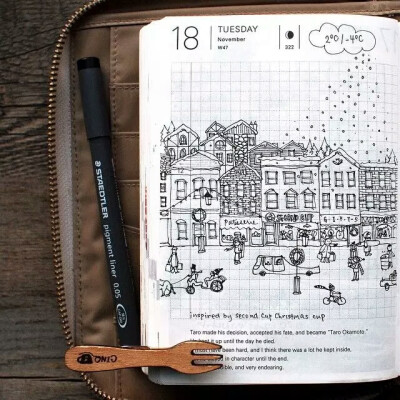 18
TUESDAY
November
W47
322
2°C/-4°C
Patisserie
SECOND CUP
G-I-F-T-S
STAEDTLER
pigment liner 0.05
inspired by Second Cup Christmas cup
Taro made his decision, accepted his fate, and became "Taro Okamoto."
it up until the day he died.
have been hard, and I think there was a lot he kept inside,
in character until the end.
ble, and very endearing.